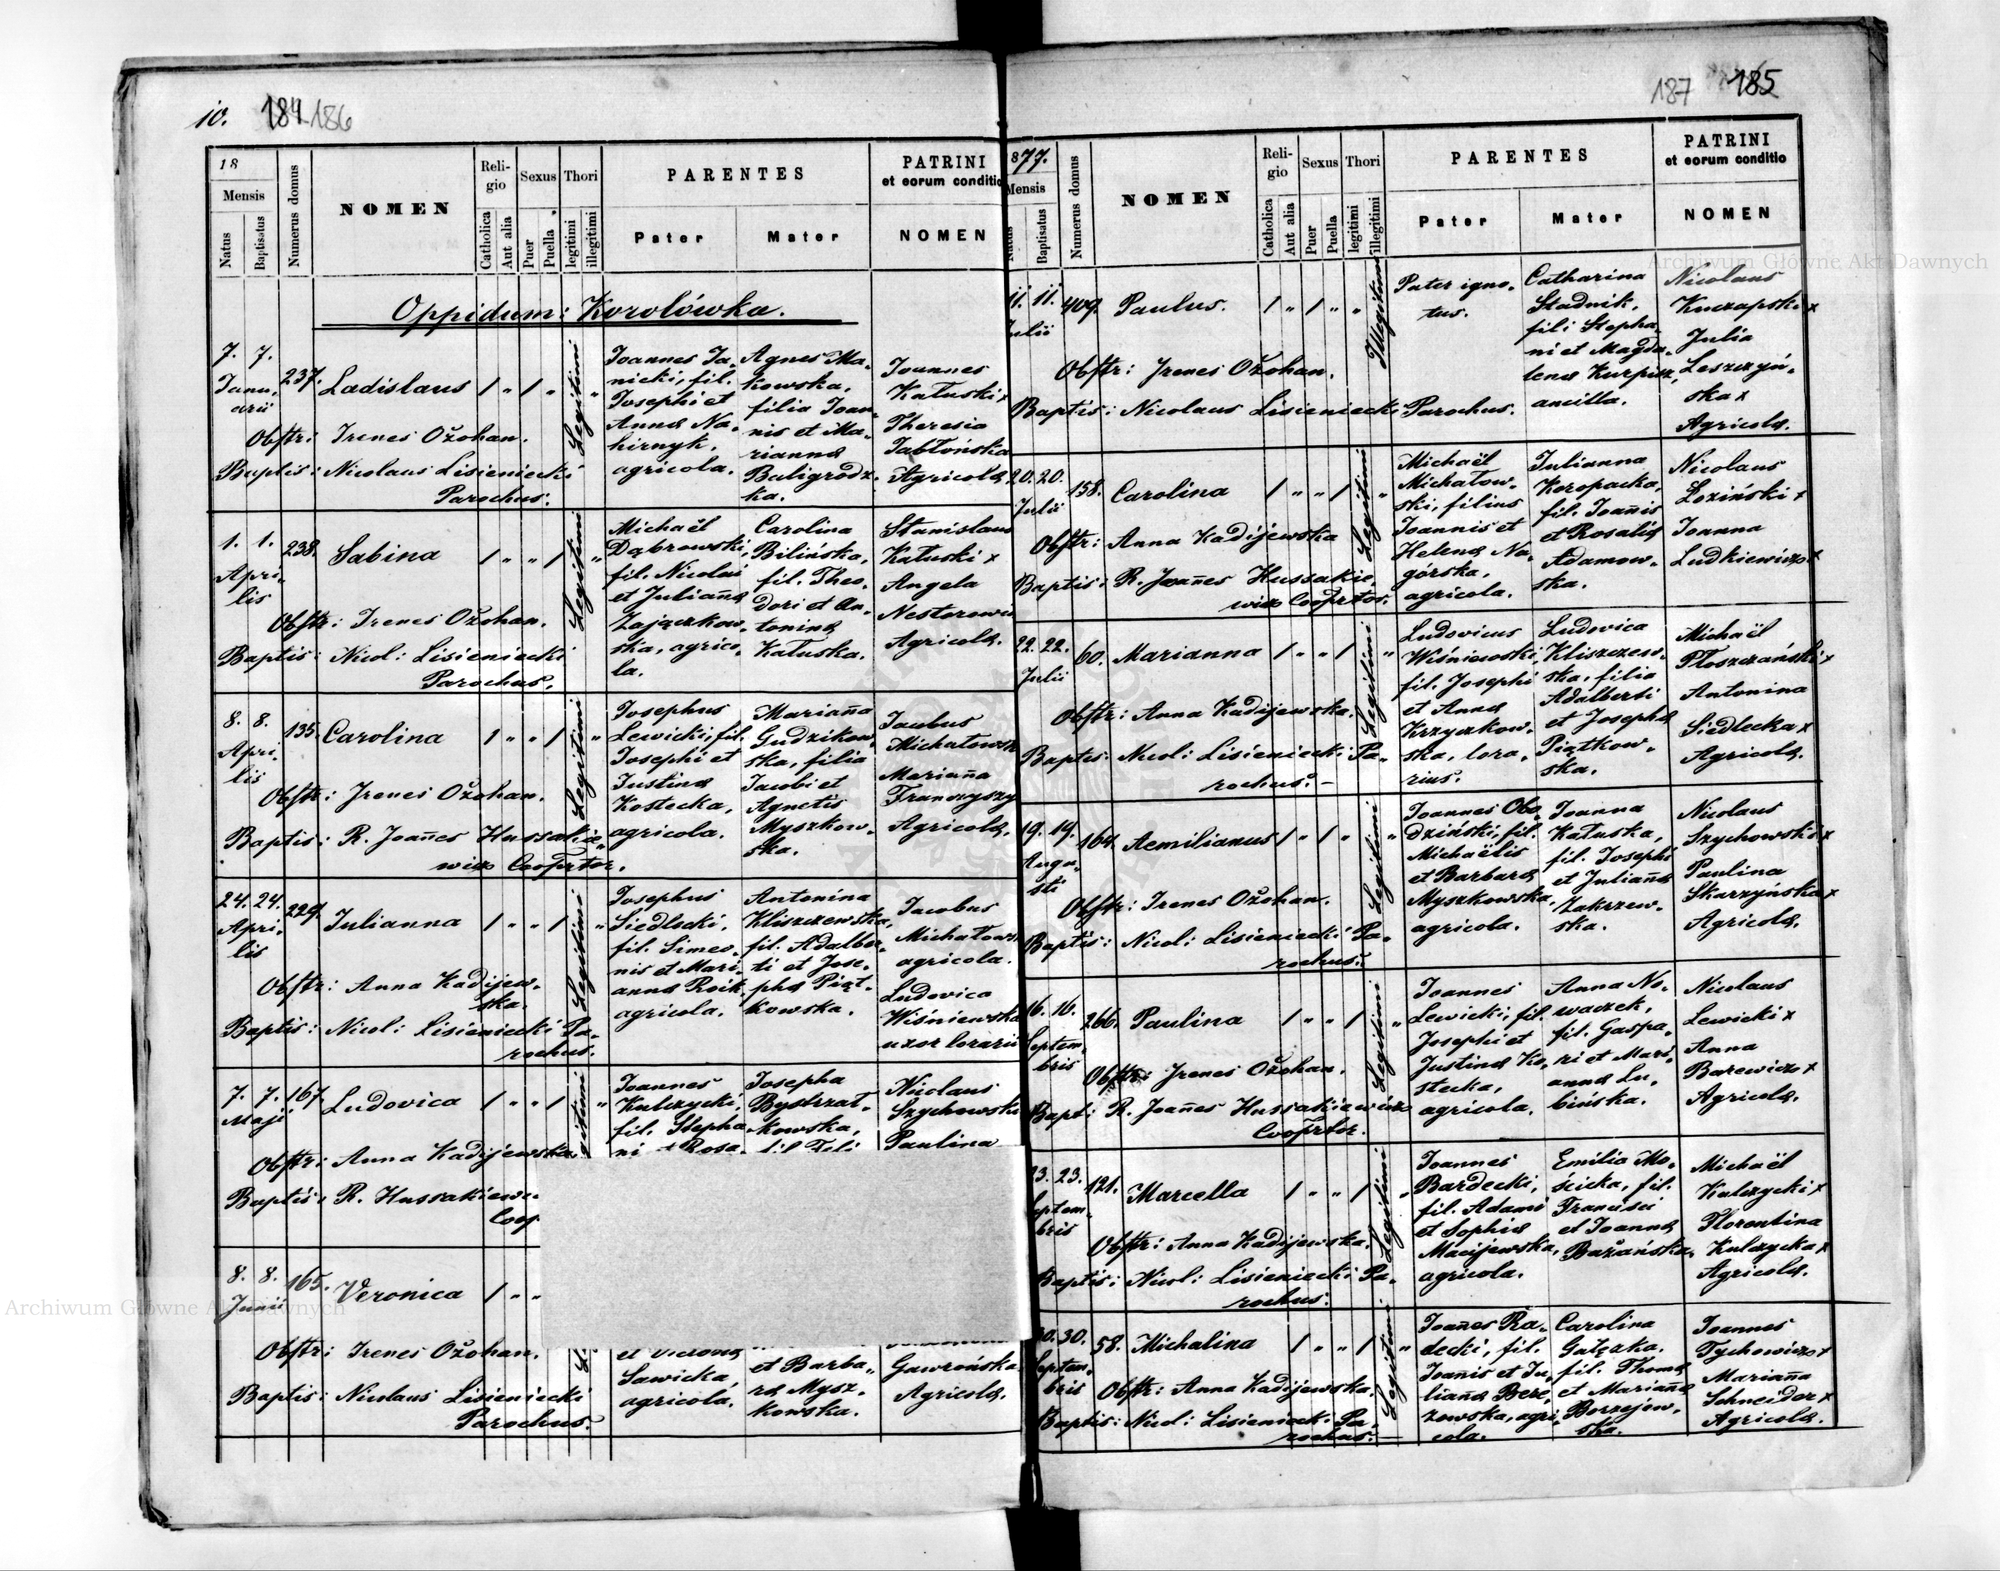 10. 184 186
18
Mensis
Natus
Baptisatus
Numerus domus
NOMEN
Religio
Catholica
Aut alia
Sexus
Puer
Puella
Thori
legitimi
illegitimi
PARENTES
Pater
Mater
PATRINI
et eorum conditio
NOMEN
Oppidum: Korolówka.
7. 7.
Janu-
arii
237.
Ladislaus
Obstr: Irenes Ożohan.
Baptis: Nicolaus Lisieniecki
Parochus.
Legitimi
Joannes Ja-
nicki, fil.
Josephi et
Anna Na-
hirnyk,
agricola.
Agnes Ma-
kowska,
filia Joan-
nis et Ma-
rianna
Baligrodz-
ka.
Joannes
Kałuski x
Theresia
Jabłońska
Agricola.
1. 1.
Apri-
lis
238.
Sabina
Obstr: Irenes Ożohan.
Baptis: Nicol: Lisieniecki
Parochus.
Legitimi
Michaël
Dąbrowski,
fil. Nicolai
et Julianna
Zajączkow-
ska, agrico-
la.
Carolina
Bilińska,
fil. Theo-
dori et An-
tonina
Kałuska.
Stanislaus
Kałuski x
Angela
Agricola.
8. 8.
Apri-
lis
135.
Carolina
Obstr: Irenes Ożohan.
Baptis: R. Joannes Hussakie-
wicz Cooprtor.
Legitimi
Josephus
Lewicki, fil.
Josephi et
Justina
Kostecka,
agricola.
Marianna
Gudzikow-
ska, filia
Jacobi et
Agnetis
Myszkow-
ska.
Jacobus
Marianna
Agricola.
24. 24.
Apri-
lis
229.
Julianna
Obstr: Anna Kadijew-
ska.
Baptis: Nicol: Lisieniecki Pa-
rochus.
Legitimi
Josephus
Siedlecki,
fil. Simeo-
nis et Mari-
anna Roik
agricola.
Antonina
Kliszczewska,
fil. Adalber-
ti et Jose-
pha Piąt-
kowska.
Jacobus
agricola.
Ludovica
Wiśniewska
uxor lorarii
7. 7.
Maji
167.
Ludovica
Obstr: Anna Kadijewska
Baptis: R.
Joannes
Kulczycki,
fil. Stepha
ni et Rosa
Josepha
Bystrzat-
kowska,
fil. Feli
Nicolaus
Szychowski
Paulina
8. 8.
Junii
165.
Veronica
Obstr: Irenes Ożohan.
Baptis: Nicolaus Lisieniecki
Parochus.
Sawicka,
agricola.
et Barba-
ra Mysz-
kowska.
Gawrońska
Agricola.
187 185
877.
Mensis
Natus
Baptisatus
Numerus domus
NOMEN
Religio
Catholica
Aut alia
Sexus
Puer
Puella
Thori
legitimi
illegitimi
PARENTES
Pater
Mater
PATRINI
et eorum conditio
NOMEN
11. 11.
Julii
409.
Paulus.
Obstr: Irenes Ożohan.
Baptis: Nicolaus Lisieniecki Parochus.
Illegitimi
Pater igno-
tus.
Catharina
Stadnik,
fili Stepha-
ni et Magda-
lena Kurpisz,
ancilla.
Nicolaus
Knczapski x
Julia
Leszczyń-
ska x
Agricola.
20. 20.
Julii
158.
Carolina
Obstr: Anna Kadijewska
Baptis: R. Joannes Hussakie-
wicz Cooprtor.
Legitimi
Michaël
Michałow-
ski, filius
Joannis et
Helena Na-
górska,
agricola.
Julianna
Koropacka,
fil. Joannis
et Rosalia
Adamow-
ska.
Nicolaus
Loziński x
Joanna
Ludkiewicz x
22. 22.
Julii
60.
Marianna
Obstr: Anna Kadijewska.
Baptis: Nicol: Lisieniecki Pa-
rochus.
Legitimi
Ludovicus
Wiśniewski,
fil. Josephi
et Anna
Krzyczkow-
ska, lora-
rius.
Ludovica
Kliszczew-
ska, filia
Adalberti
et Josepha
Piątkow-
ska.
Michaël
Płoszczański x
Antonina
Siedlecka x
Agricola.
19. 19.
Augu-
sti
164.
Aemilianus
Obstr: Irenes Ożohan.
Baptis: Nicol: Lisieniecki Pa-
rochus.
Legitimi
Joannes Obo-
dziński, fil.
Michaëlis
et Barbara
Myszkowska,
agricola.
Joanna
Kałuska,
fil. Josephi
et Julianna
Zakrzew-
ska.
Nicolaus
Szychowski x
Paulina
Skarzyńska x
Agricola.
16. 16.
Septem-
bris
266.
Paulina
Obstr: Irenes Ożohan.
Bapt: R. Joannes Hussakiewicz
Cooprtor.
Legitimi
Joannes
Lewicki, fil.
Josephi et
Justina Ko-
stecka,
agricola.
Anna No-
waczek,
fil. Gaspa-
ri et Mari-
anna Lu-
bińska.
Nicolaus
Lewicki x
Anna
Barewicz x
Agricola.
23. 23.
Septem-
bris
121.
Marcella
Obstr: Anna Kadijewska.
Baptis: Nicol: Lisieniecki Pa-
rochus.
Legitimi
Joannes
Bardecki,
fil. Adami
et Sophia
Macijewska,
agricola.
Emilia Mo-
ścicka, fil.
Francisci
et Joanna
Bażańska
Michaël
Kulczycki x
Florentina
Kulczycka x
Agricola.
30. 30.
Septem-
bris
58.
Michalina
Obstr: Anna Kadijewska.
Baptis: Nicol: Lisieniecki Pa-
rochus.
Legitimi
Joannes Ra-
decki, fil.
Joannis et Ju-
lianna Bere-
zowska, agri-
cola.
Carolina
Gałęzka.
fil. Thoma
et Marianna
Borzejow-
ska.
Joannes
Tychowicz x
Marianna
Schneider x
Agricola.
Archiwum Główne Akt Dawnych
Archiwum Główne Akt Dawnych